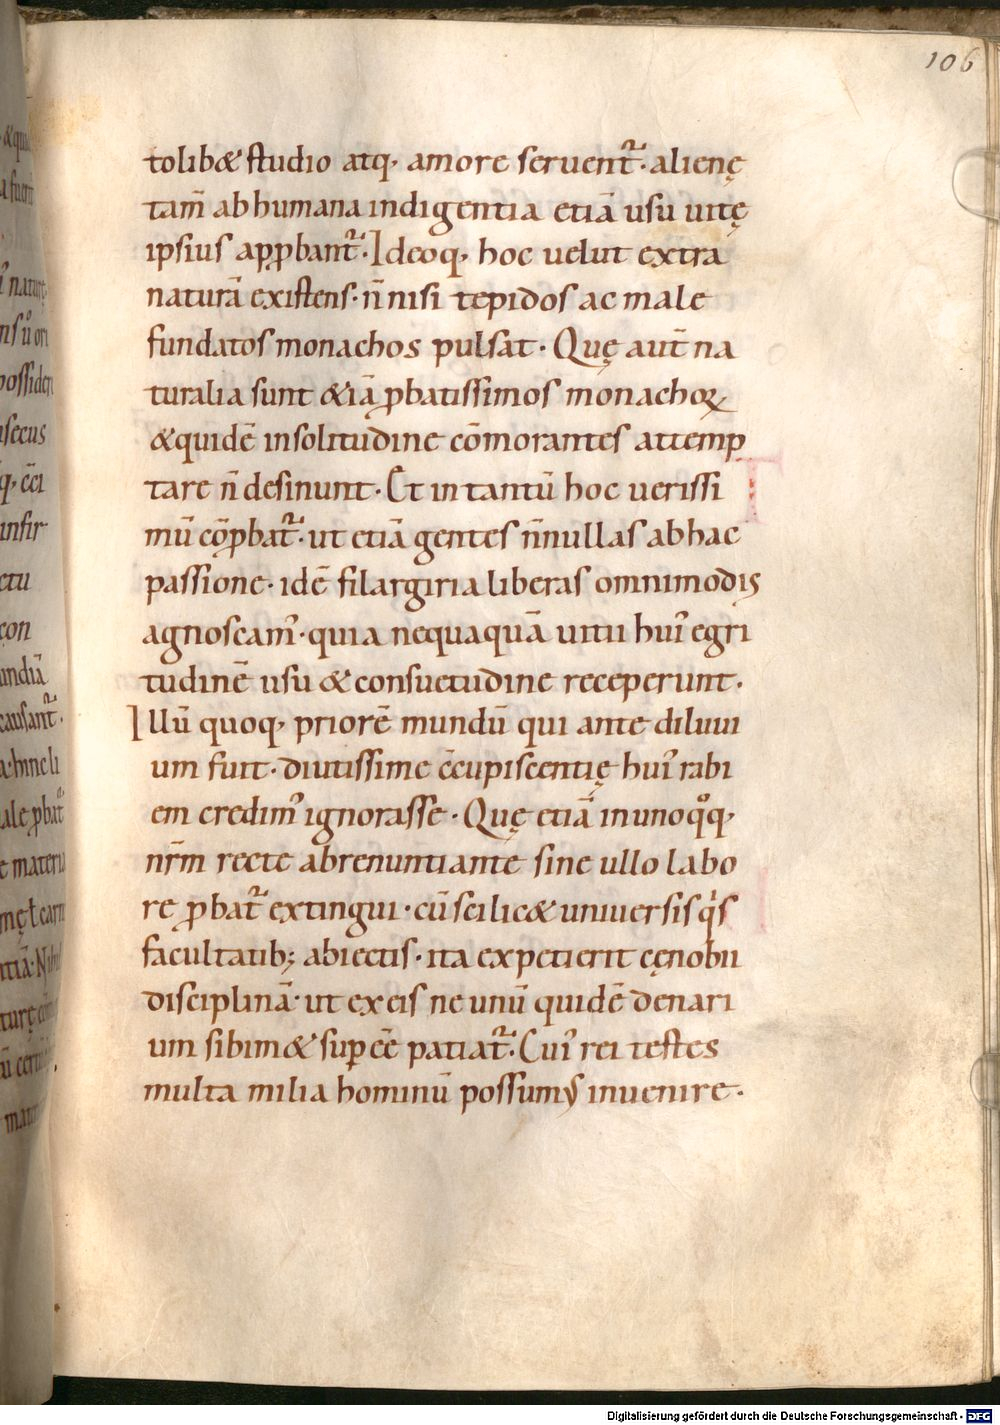 106
tolib& studio atq, amore seruent᷑. alienę
tam̄ ab humana indigentia etiā usu uitę
ipsius app̱bant᷑. Ideoq, hoc uelut extra
naturā existens. n̄ nisi tepidos ac male
fundatos monachos pulsat. Quę aut̄ na
turalia sunt &iā ꝓbatissimos monachoꝝ
& quidē insolitudine cōmorantes attemp
tare n̄ desinunt. Et in tantū hoc uerissi
mū cōꝓbat᷑. ut etiā gentes n̄nullas ab hac
passione. idē filargiria liberas omnimodis
agnoscam᷒. quia nequaquā uitii hui᷒ egri
tudinē usu & consuetudine receperunt.
Illū quoq, priorē mundū qui ante diluui
um fuit. diutissime c̄cupiscentię hui᷒ rabi
em credim᷒ ignorasse. Quę etiā inunoqͦq,
nr̄m recte abrenuntiante sine ullo labo
re ꝓbat᷑ extingui. cū scilic& uniuersis qͥs
facultatib; abiectis. ita expetierit cęnobii
disciplinā. ut ex eis ne unū quidē denari
um sibim& sup̱ c̄c̄ patiat᷑. Cui᷒ rei testes
multa milia hominū possumꝰ inuenire.
Digitalisierung gefördert durch die Deutsche Forschungsgemeinschaft - DFG